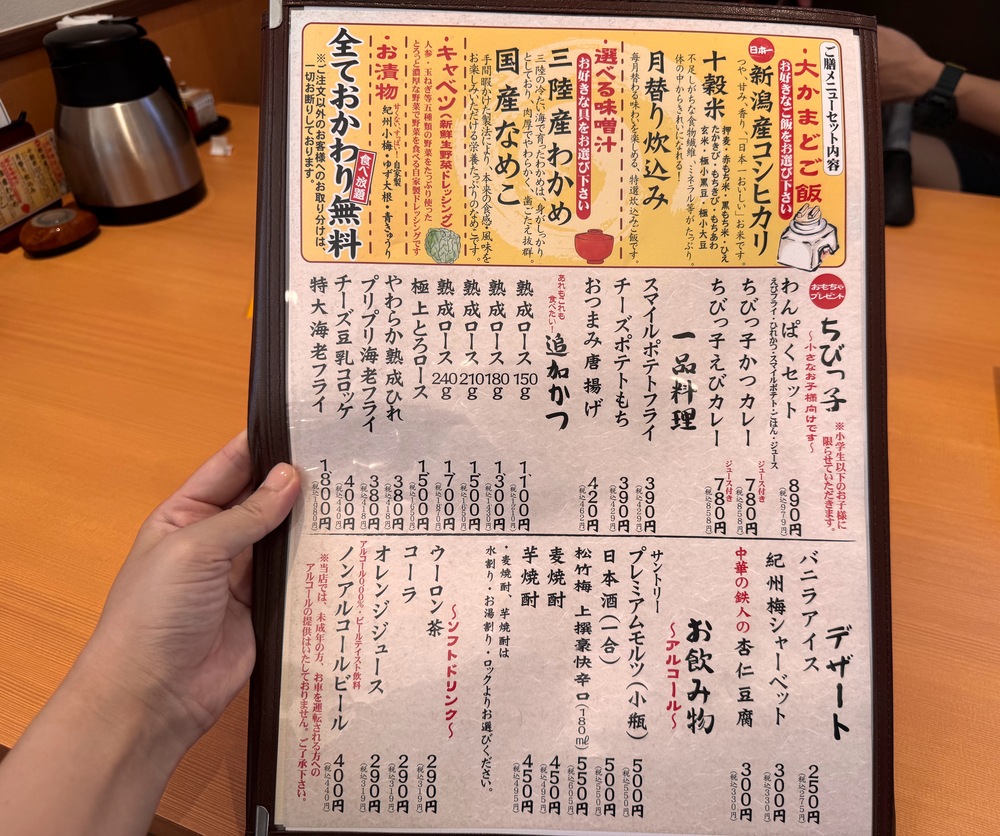 ご膳メニューセット内容
・大かまどご飯
お好きなご飯をお選び下さい
日本一
新潟産コシヒカリ
つや、甘み、香り、「日本一おいしい」お米です。
十穀米
押麦・赤もち米・黒もち米・ひえ
たかきび・もちきび・もちあわ
玄米・極小黒豆・極小大豆
不足しがちな食物繊維、ミネラル等がたっぷり。
体の中からきれいになれる!
月替り炊込み
毎月替わる味わいを楽しめる、特選炊込みご飯です。
・選べる味噌汁
お好きな具をお選び下さい
三陸産わかめ
三陸の冷たい海で育ったわかめは、身がしっかり
としており、肉厚でやわらかく、歯ごたえ抜群。
国産なめこ
手間暇かけた製法により、本来の食感・風味を
お楽しみいただける栄養たっぷりのなめこです。
・キャベツ〈新鮮生野菜ドレッシング〉
人参・玉ねぎ等五種類の野菜をたっぷり使った
とろっと濃厚な野菜で野菜を食べる自家製ドレッシングです
・お漬物
紀州小梅・ゆず大根・青きゅうり
食べ放題
全ておかわり無料
※ご注文以外のお客様へのお取り分けは、
一切お断りしております。
おもちゃ
プレゼント
ちびっ子
〜小さなお子様向けです〜
※小学生以下のお子様に
限らせていただきます。
わんぱくセット 890円
(税込979円)
えびフライ・ひれかつ・スマイルポテト・ごはん・ジュース
ちびっ子かつカレー ジュース付き 780円
(税込858円)
ちびっ子えびカレー ジュース付き 780円
(税込858円)
一品料理
スマイルポテトフライ 390円
(税込429円)
チーズポテトもち 390円
(税込429円)
おつまみ唐揚げ 420円
(税込462円)
あれもこれも
食べたい!
追加かつ
熟成ロース150g 1,100円
(税込1210円)
熟成ロース180g 1,300円
(税込1430円)
熟成ロース210g 1,500円
(税込1650円)
熟成ロース240g 1,700円
(税込1870円)
極上とろロース 1,500円
(税込1650円)
やわらか熟成ひれ 380円
(税込418円)
プリプリ海老フライ 380円
(税込418円)
チーズ豆乳コロッケ 400円
(税込440円)
特大海老フライ 1,800円
(税込1980円)
デザート
バニラアイス 250円
(税込275円)
紀州梅シャーベット 300円
(税込330円)
中華の鉄人の 杏仁豆腐 300円
(税込330円)
お飲み物
〜アルコール〜
サントリー
プレミアムモルツ(小瓶) 500円
(税込550円)
日本酒(一合) 500円
(税込550円)
松竹梅 上撰豪快辛口(180㎖) 550円
(税込605円)
麦焼酎 450円
(税込495円)
芋焼酎 450円
(税込495円)
・麦焼酎、芋焼酎は
水割り・お湯割り・ロックよりお選びください。
〜ソフトドリンク〜
ウーロン茶 290円
(税込319円)
コーラ 290円
(税込319円)
オレンジジュース 290円
(税込319円)
アルコール0.00%・ビールテイスト飲料
ノンアルコールビール 400円
(税込440円)
※当店では、未成年の方、お車を運転される方への
アルコールの提供はいたしておりません。ご了承下さい。